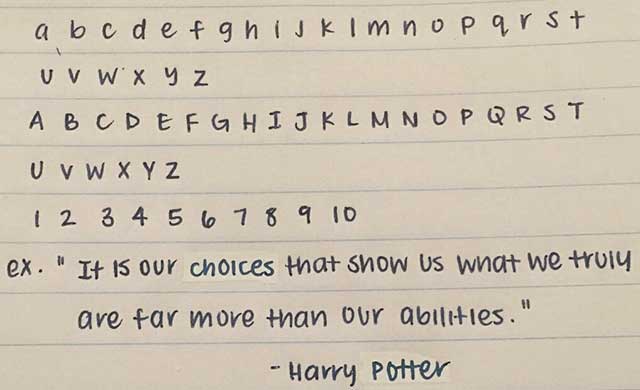 a b c d e f g h i j k l m n o p q r s t
u v w x y z
A B C D E F G H I J K L M N O P Q R S T
U V W X Y Z
1 2 3 4 5 6 7 8 9 10
ex. " It is our choices that show us what we truly
are far more than our abilities."
- Harry Potter